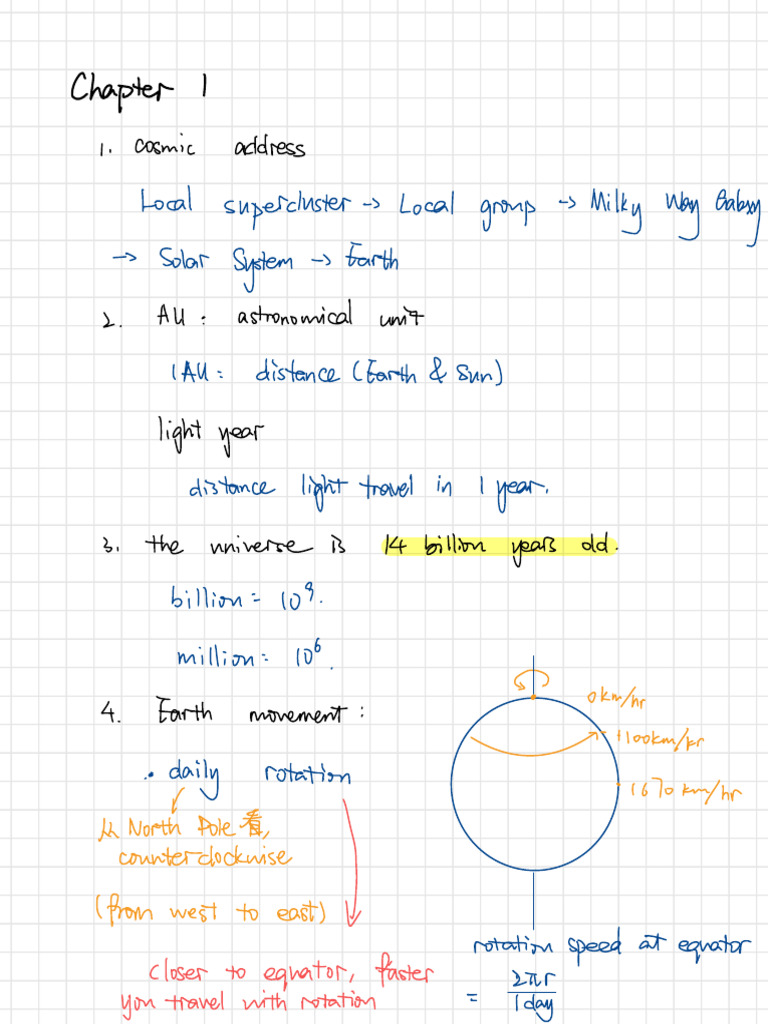 Chapter 1
1. cosmic address
Local supercluster → Local group → Milky Way Galaxy
→ Solar System → Earth
2. AU: astronomical unit
1AU: distance (Earth & Sun)
light year
distance light travel in 1 year.
3. the universe is 14 billion years old.
billion = 10⁹.
million = 10⁶.
4. Earth movement:
• daily rotation
从 North Pole 看,
counterclockwise
(from west to east)
closer to equator, faster
you travel with rotation
0km/hr
1100km/hr
1670 km/hr
rotation speed at equator
= 2πr
1day